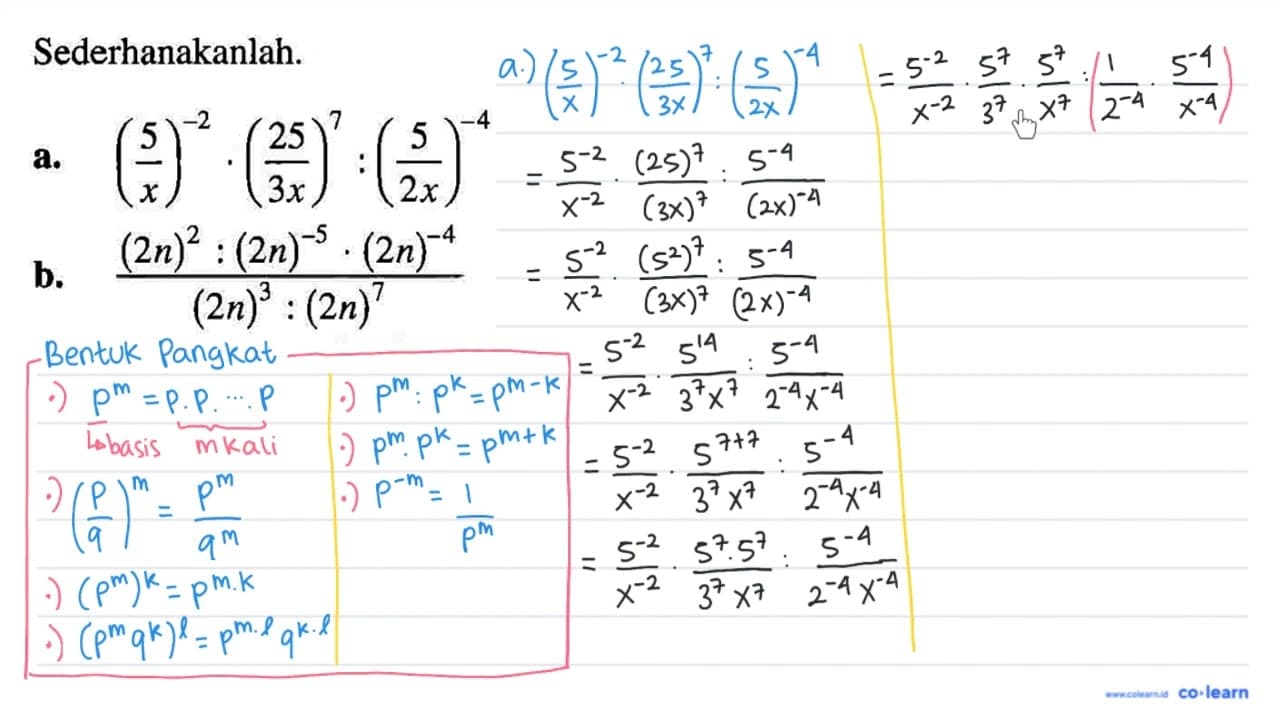 Sederhanakanlah.
a. (5/x)^-2 · (25/3x)^7 : (5/2x)^-4
b. ((2n)^2 : (2n)^-5 · (2n)^-4)/((2n)^3 : (2n)^7)
Bentuk Pangkat
·) p^m = p.p. ... .p
↳ basis m kali
·) (p/q)^m = p^m/q^m
·) (p^m)^k = p^m.k
·) (p^m q^k)^l = p^m.l q^k.l
·) p^m : p^k = p^m-k
·) p^m . p^k = p^m+k
·) p^-m = 1/p^m
a.) (5/x)^-2 · (25/3x)^7 : (5/2x)^-4
= 5^-2/x^-2 · (25)^7/(3x)^7 : 5^-4/(2x)^-4
= 5^-2/x^-2 · (5^2)^7/(3x)^7 : 5^-4/(2x)^-4
= 5^-2/x^-2 · 5^14/3^7x^7 : 5^-4/2^-4x^-4
= 5^-2/x^-2 · 5^7+7/3^7x^7 : 5^-4/2^-4x^-4
= 5^-2/x^-2 · 5^7.5^7/3^7x^7 : 5^-4/2^-4x^-4
= 5^-2/x^-2 · 5^7/3^7 · 5^7/x^7 : (1/2^-4 · 5^-4/x^-4)
www.colearn.id co·learn